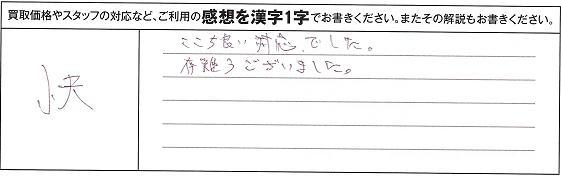 買取価格やスタッフの対応など、ご利用の感想を漢字1字でお書きください。またその解説もお書きください。
快
ここち良い対応でした。
有難うございました。